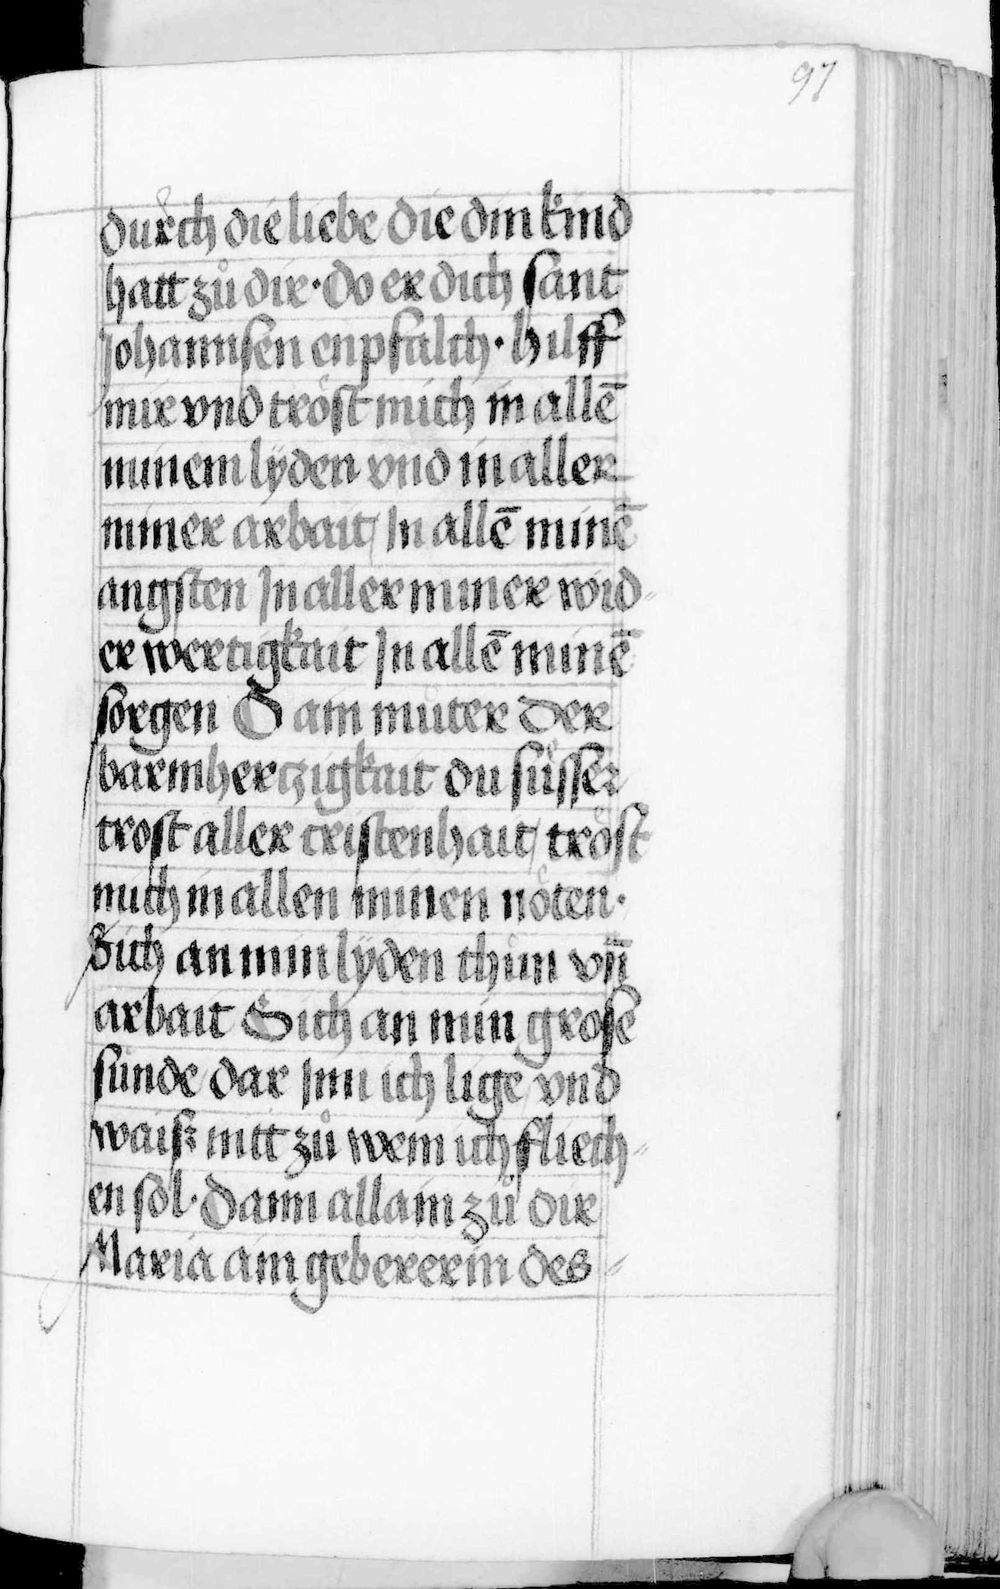 97
durch die liebe die din kind
hatt zů dir · do er dich sant
Johannsen enpfalch · hilff
mir vnd tröst mich in allē
minem lÿden vnd in aller
miner arbait / In allē minē
angsten In aller miner wid-
er wertigkait In allē minē
sorgen O ain můter der
barmhertzigkait du süsser
trost aller cristenhait / tröst
mich in allen minen nöten ·
Sich an min lÿden thun vn̄
arbait Sich an min grose
sünde dar Inn ich lige vnd
waisz nitt zů wem ich fliech-
en sol · Dann allain zů dir
Maria ain gebererin des